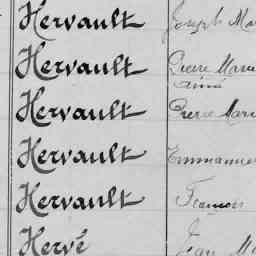 Hervault Joseph Ma
Hervault Pierre Marie
Aimé
Hervault Pierre Mari
Hervault Emmanuel
Hervault François
Hervé Jean M